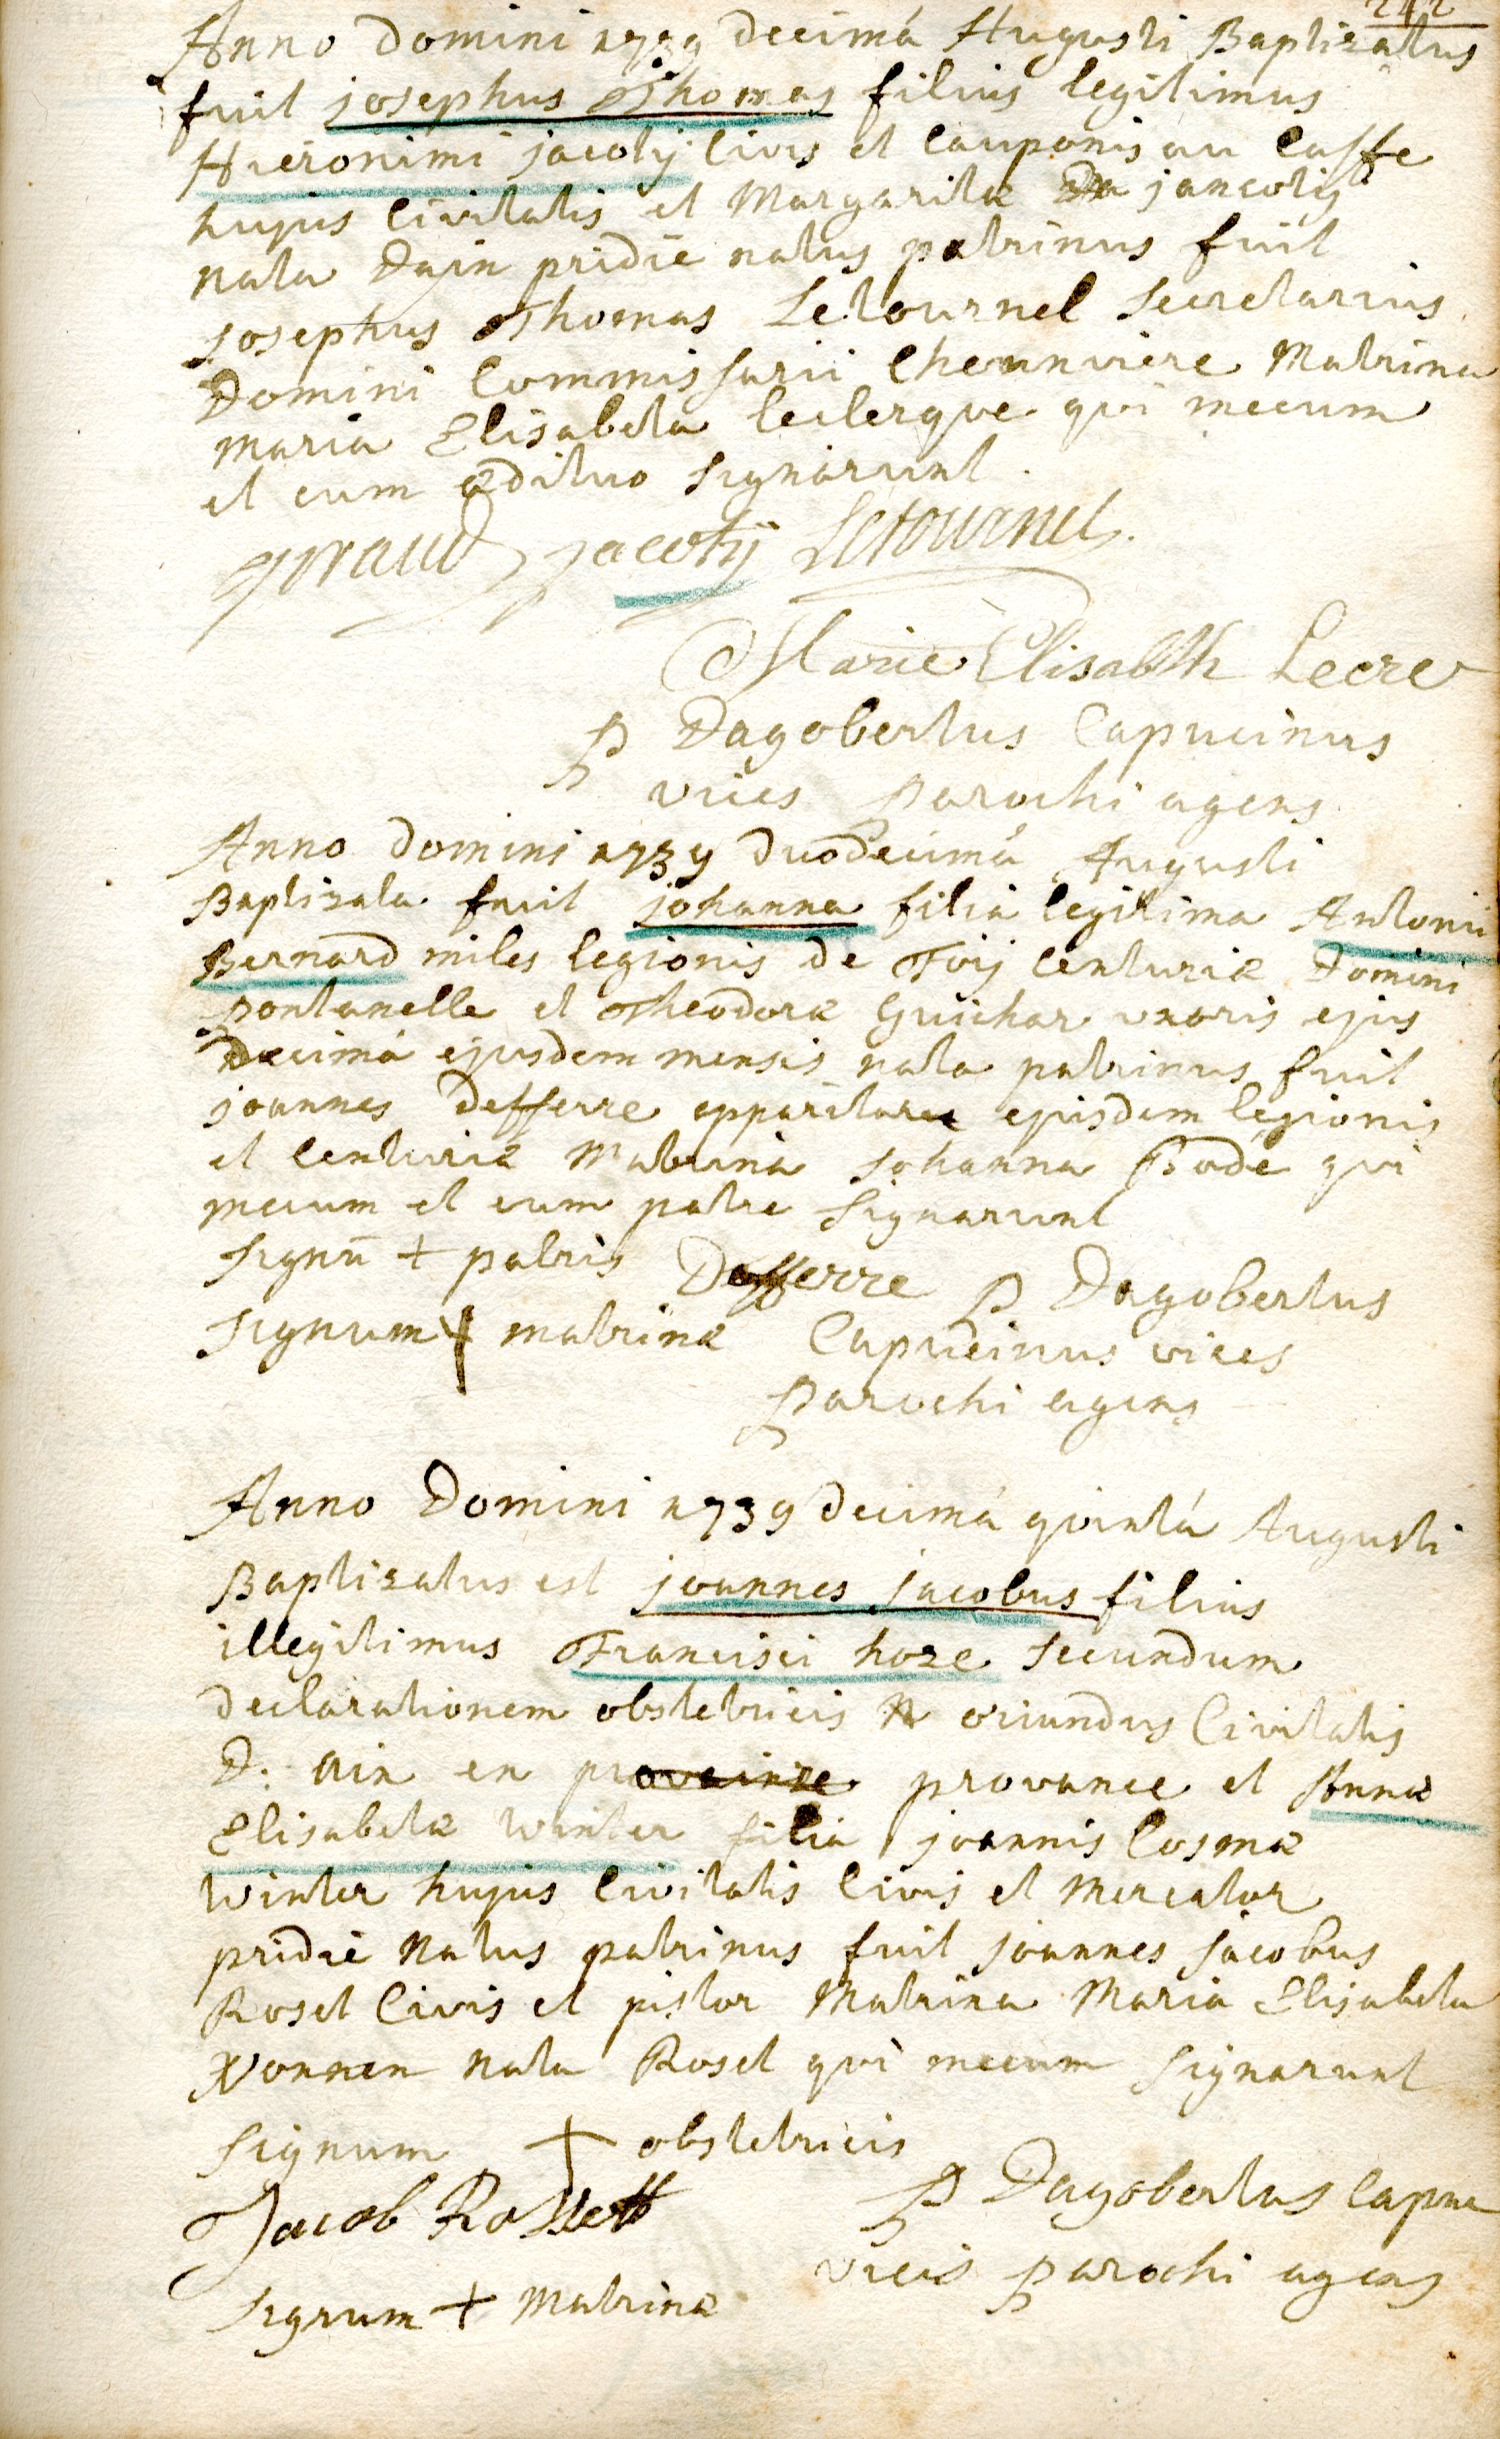 242
Anno Domini 1739 decimá Augusti Baptizatus
fuit josephus Thomas filius legitimus
Hieronimi jacotij Civis et Cauponis au Caffe
hujus Civitatis et Margaritæ jancotij
nata Dajn pridie natus patrinus fuit
josephus Thomas Letournel Secretarius
Domini Commissarii Chennviere Matrina
Maria Elisabeta leclerque qui mecum
et cum ædituo signarunt.
jacotij Letournel.
Marie Elisabth Lecre
P Dagobertus Capucinus
vices Parochi agens
Anno Domini 1739 duodecimá Augusti
Baptizata fuit johanna filia legitima Antonii
Bernard miles legionis de Foij Centuriæ Domini
pontanelle et Theodoræ Guichar uxoris ejus
decimá ejusdem mensis nata patrinus fuit
joannes Defferre ejusdem legionis
et Centuriæ Matrina Johanna Bode qui
mecum et cum patre signarunt
signū + patris Defferre P Dagobertus
signum + matrinæ Capucinus vices
Parochi agens
Anno Domini 1739 decimá quintá Augusti
Baptizatus est joannes jacobus filius
illegitimus Francisci hoze secundum
declarationem obstetricis oriundus Civitatis
D. Aix en provance et Annæ
Elisabetæ Winter filia joannis Cosmæ
Winter hujus Civitatis Civis et Mercator
pridie Natus patrinus fuit joannes jacobus
Roset Civis et pistor Matrina Maria Elisabeta
Nonnen nata Roset qui mecum signarunt
signum + obstetricis
Jacob Rossett P Dagobertus Capuc
vices parochi agens
signum + Matrinæ